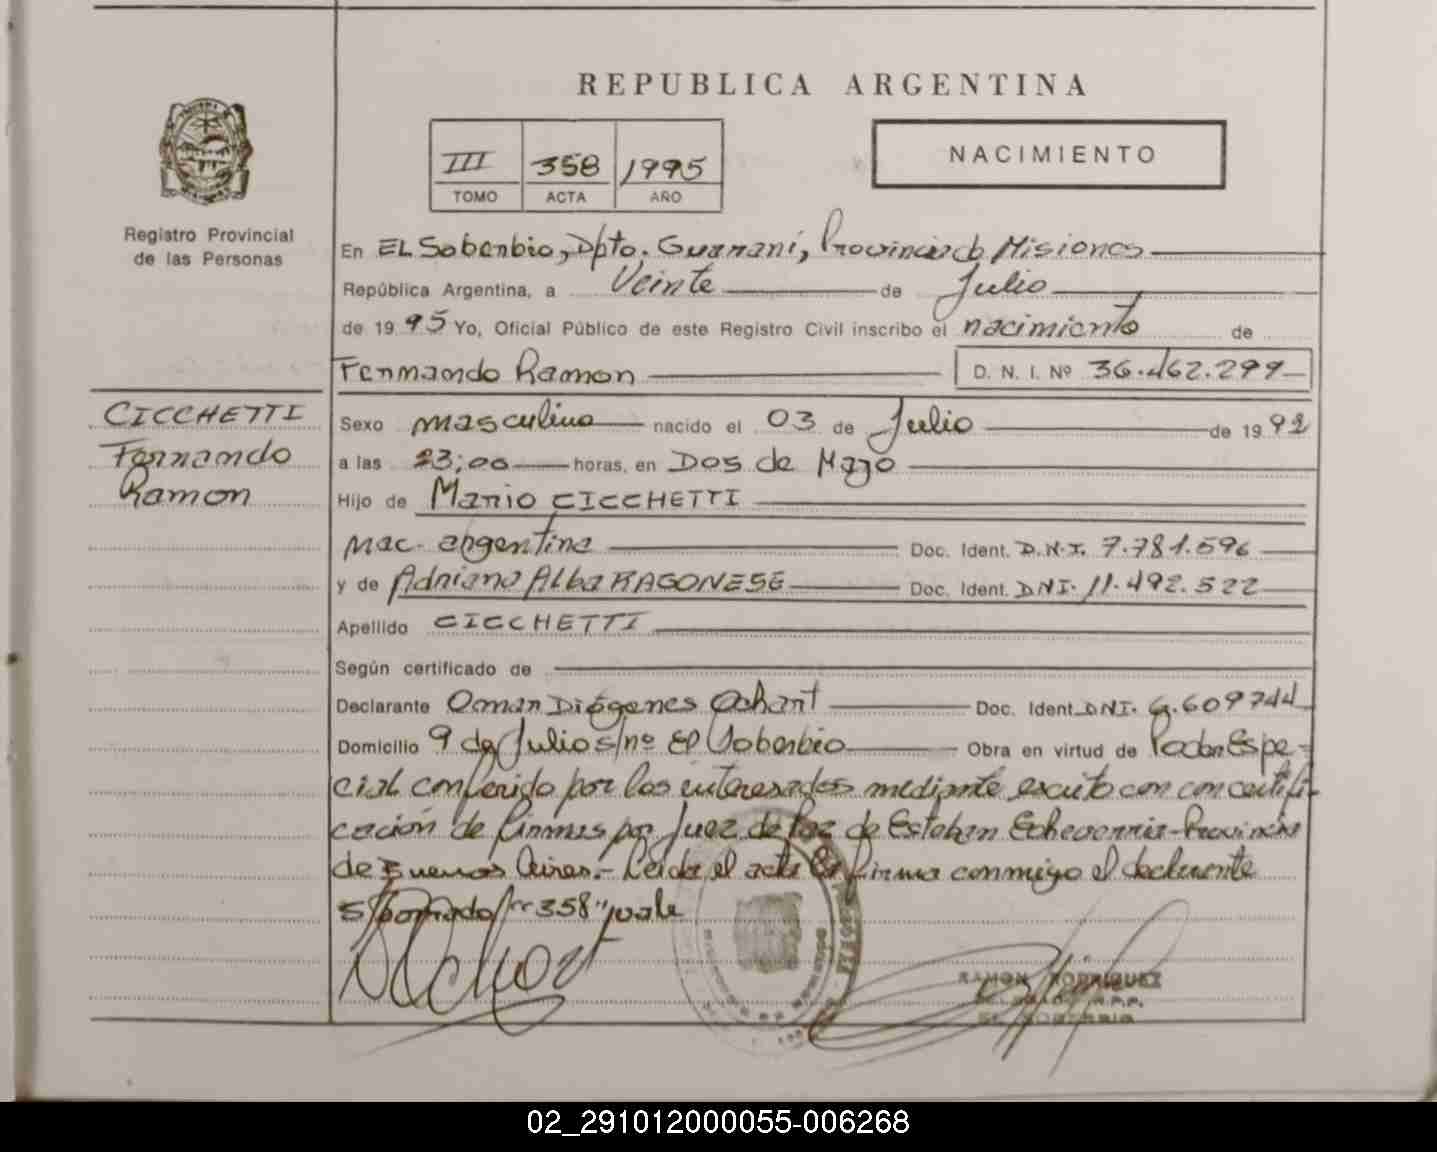 REPUBLICA ARGENTINA
III 358 1995
TOMO ACTA AÑO
NACIMIENTO
Registro Provincial
de las Personas
En EL Soberbio, Dpto. Guarani, Provincia de Misiones
República Argentina, a Veinte de Julio
de 1995 Yo, Oficial Público de este Registro Civil inscribo el nacimiento de
Fernando Ramon D. N. I. Nº 36.462.299
CICCHETTI
Fernando
Ramon
Sexo masculino nacido el 03 de Julio de 1992
a las 23;00 horas, en Dos de Mayo
Hijo de Mario CICCHETTI
nac. argentina Doc. Ident. D.N.I. 7.781.596
y de Adriana Alba RAGONESE Doc. Ident. DNI. 11.492.522
Apellido CICCHETTI
Según certificado de
Declarante Omar Diógenes Ochart Doc. Ident. DNI. 609744
Domicilio 9 de Julio s/nº El Soberbio Obra en virtud de Poder Espe-
cial conferido por los interesados mediante escrito con con certifi-
cación de firmas por Juez de Paz de Esteban Echeverria-Provincia
de Buenos Aires.- Leida el acta la firma conmigo el declarante
"358" vale
RAMON RODRIGUEZ
EL SOBERBIO
02_291012000055-006268